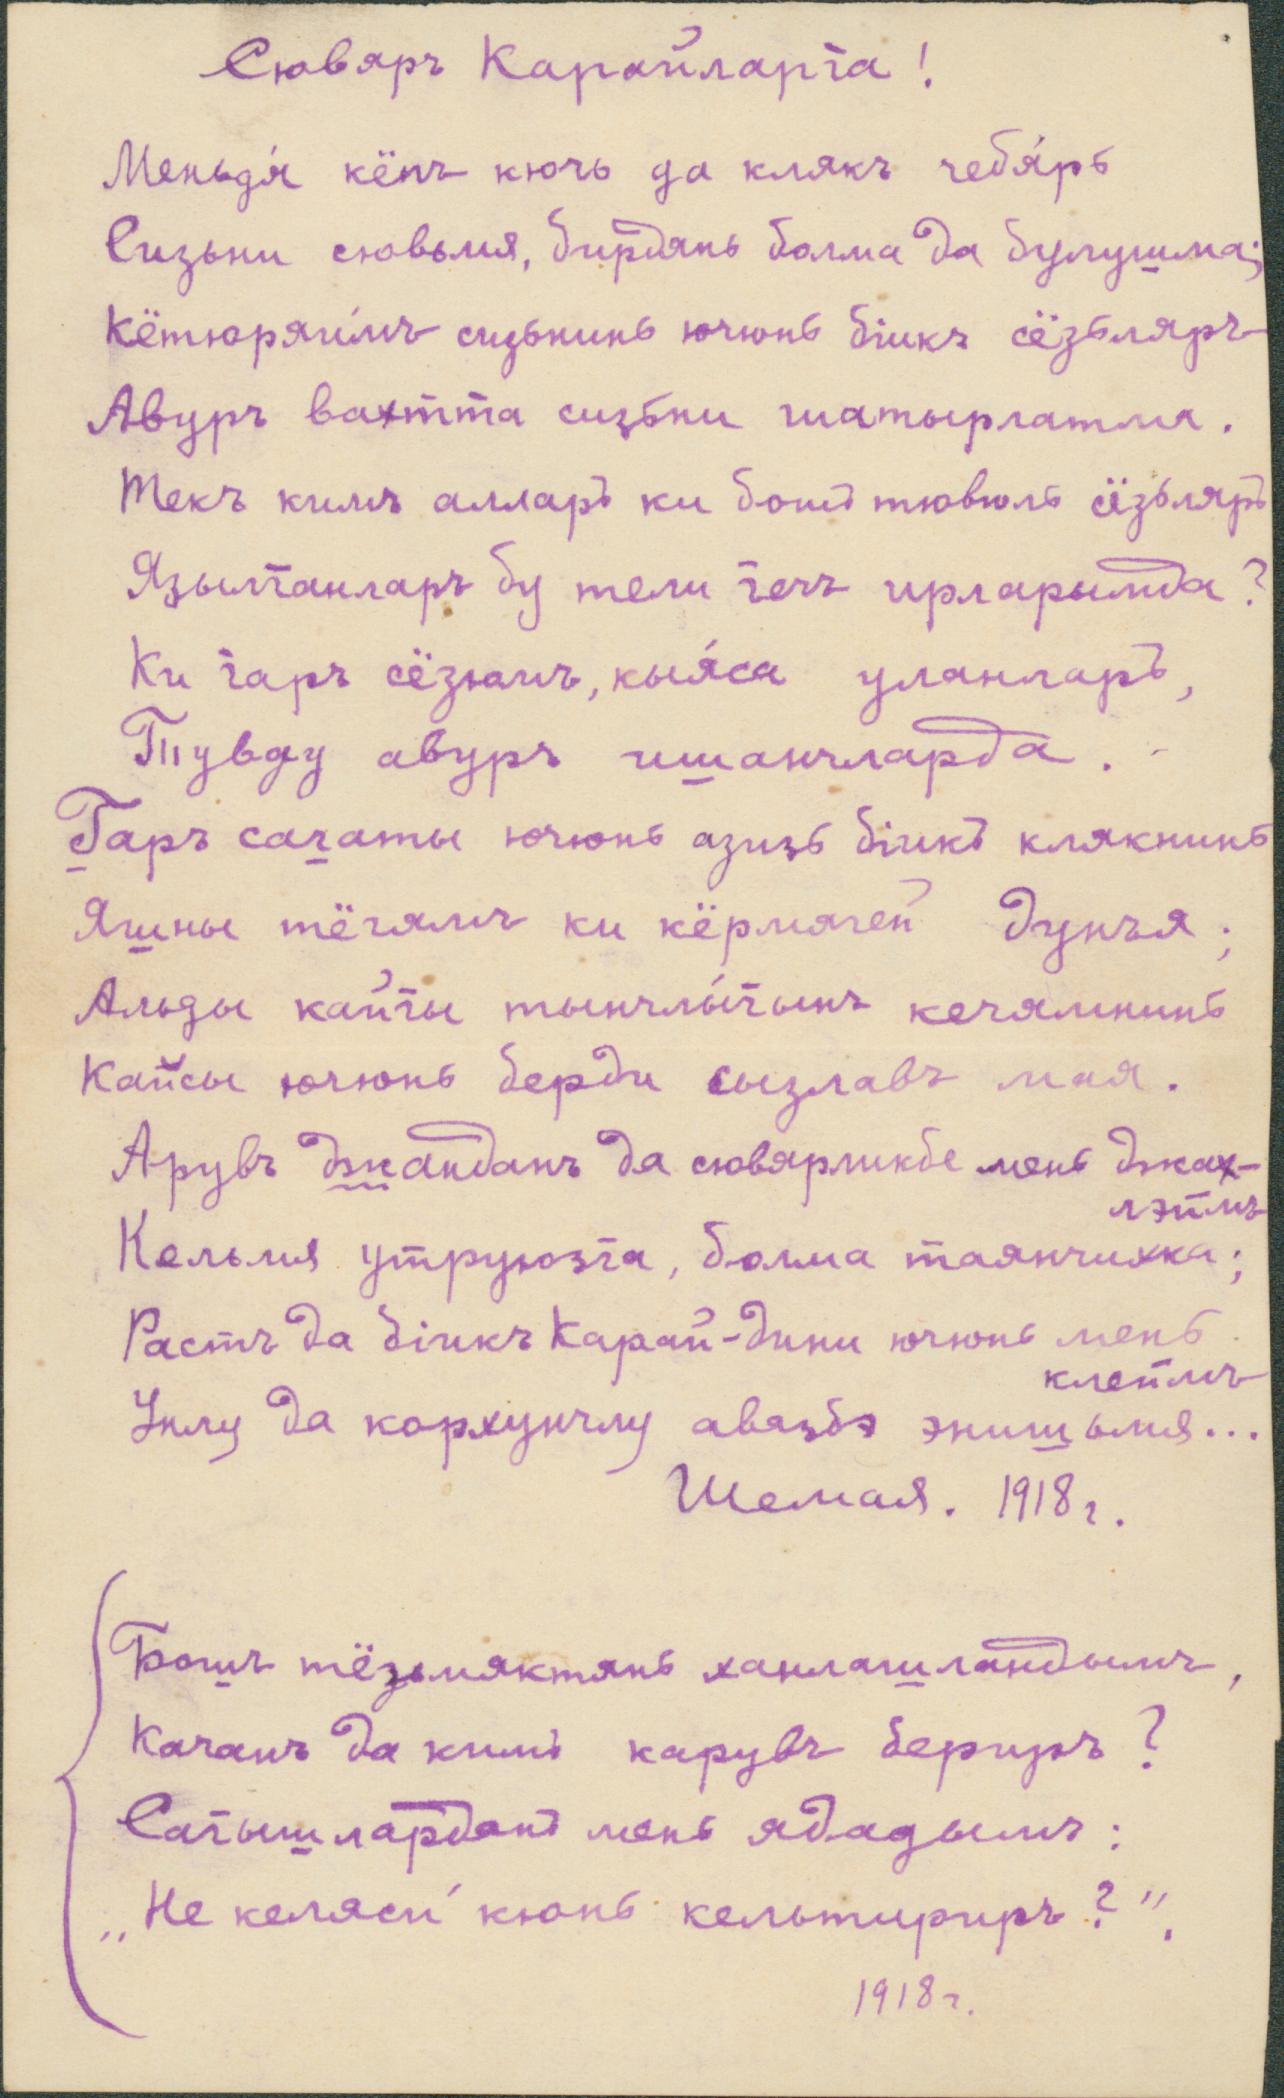 Сювяръ Карайларга!
Меньдя́ кёпъ кючь да клякъ чебя́рь
Сизьни сювьмя, бирдянь болма да булушма;
Кётюряи́мъ сизьнинь ючюнь бiикъ сёзьляръ
Авуръ вахтта сизьни шатырлатмя.
Текъ кимъ алларъ ки бошъ тювюль сёзьляръ
Язылганларъ бу тели гечъ ирларымда?
Ки гаръ сёзюмъ, кыя́са уланларъ,
Тувду авуръ ишанчларда.
Гаръ сагаты ючюнь азизь бiикъ клякнинь
Яшны тёгямъ ки кёрмягей дунъя;
Альды кайгы тынчлы́гынъ кечямнинь
Кайсы ючюнь берди сызлавъ мая.
Арувъ джанданъ да сювярликбе мень джах-
лэймъ
Кельмя утруюзга, болма таянчихка;
Растъ да бiикъ Карай-дини ючюнь мень
клеймъ
Унлу да корхунчлу авязбэ энишьмя...
Шемая. 1918 г.
Бошъ тёзьмяктянь ханлашландымъ,
Качанъ да кимъ карувъ бериръ?
Сагышларданъ мень ядадымъ:
„Не келяси́ кюнь кельтириръ?".
1918 г.